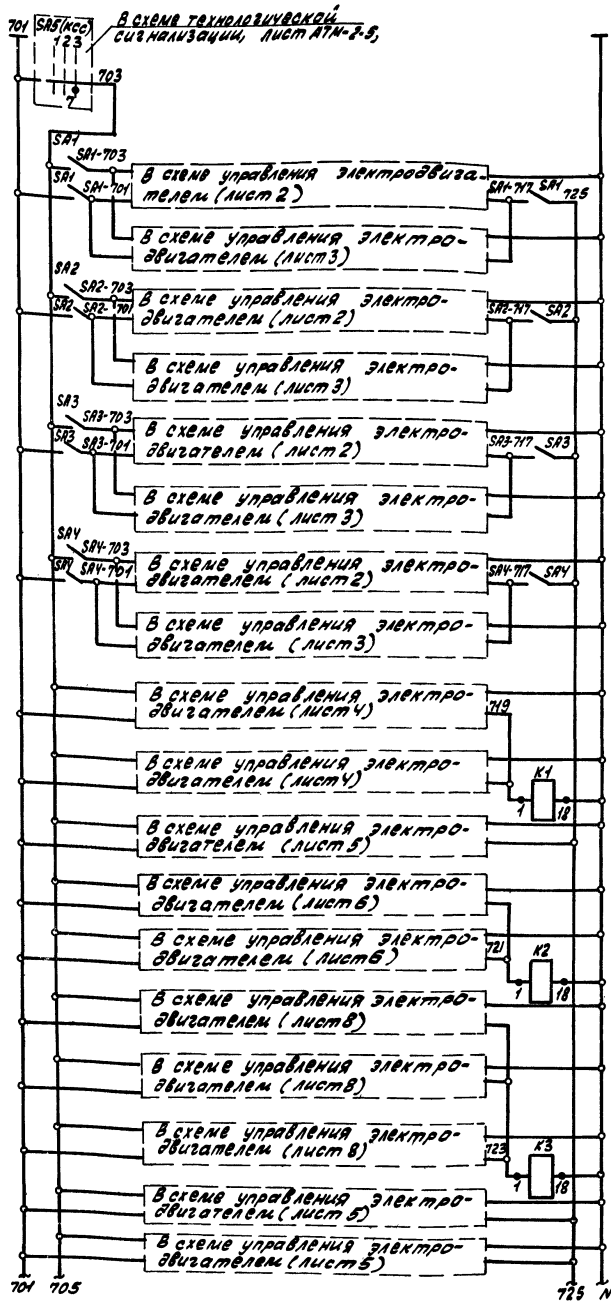 701
SA5(КСС)
1 2 3
В схеме технологической
сигнализации, лист АТМ-2-5,
703
7
SA1
SA1-703
SA1
SA1-701
В схеме управления электродвига-
телем (лист 2)
SA1-717
SA1
725
В схеме управления электро-
двигателем (лист 3)
SA2
SA2-703
SA2
SA2-701
В схеме управления электро-
двигателем (лист 2)
SA2-717
SA2
В схеме управления электро-
двигателем (лист 3)
SA3
SA3-703
SA3
SA3-701
В схеме управления электро-
двигателем (лист 2)
SA3-717
SA3
В схеме управления электро-
двигателем (лист 3)
SA4
SA4-703
SA4
SA4-701
В схеме управления электро-
двигателем (лист 2)
SA4-717
SA4
В схеме управления электро-
двигателем (лист 3)
В схеме управления электро-
двигателем (лист 4)
719
В схеме управления электро-
двигателем (лист 4)
К1
1
18
В схеме управления электро-
двигателем (лист 5)
В схеме управления электро-
двигателем (лист 6)
В схеме управления электро-
двигателем (лист 6)
721
К2
1
18
В схеме управления электро-
двигателем (лист 8)
В схеме управления электро-
двигателем (лист 8)
В схеме управления электро-
двигателем (лист 8)
723
К3
1
18
В схеме управления электро-
двигателем (лист 5)
В схеме управления электро-
двигателем (лист 5)
701
705
725
N